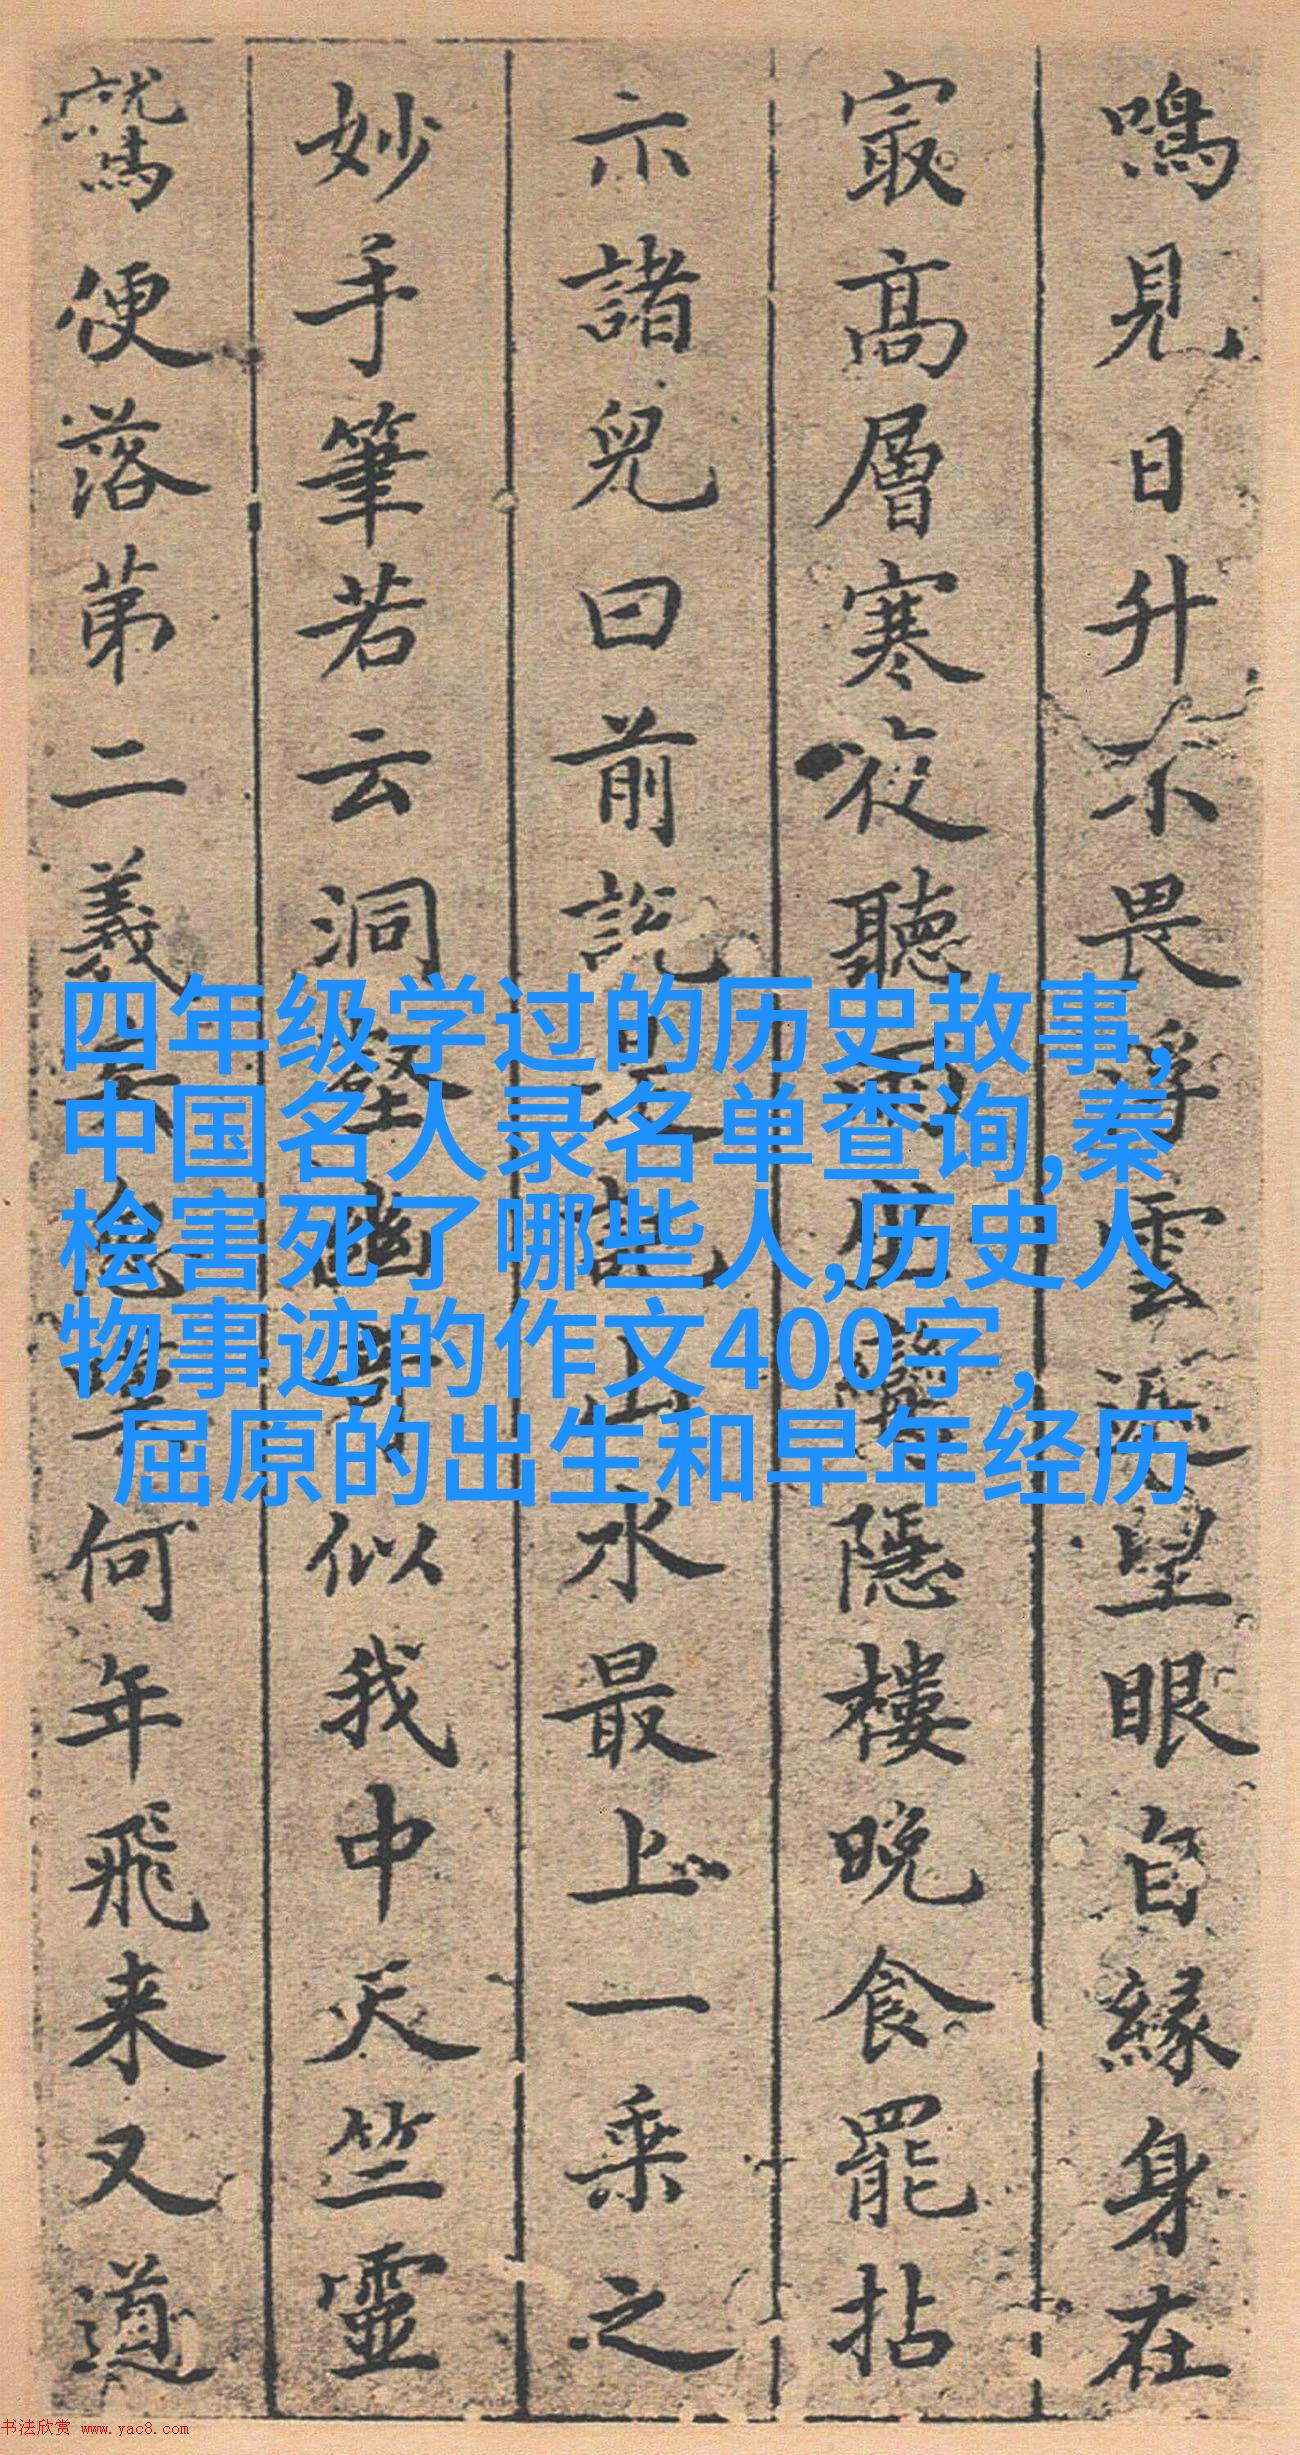 鳴見日升不畏浮雲望眼自緣身在
冣高層寒夜聽隱樓晚食罷拈
示諸兒曰前說之山水最上一乘之
妙手筆若云洞壑幽奇似我中天竺靈
鷲便落苐二義矣何年飛来又道
四年级学过的历史故事,
中国名人录名单查询,秦
桧害死了哪些人,历史人
物事迹的作文400字，
屈原的出生和早年经历
书法欣赏 www.yac8.com